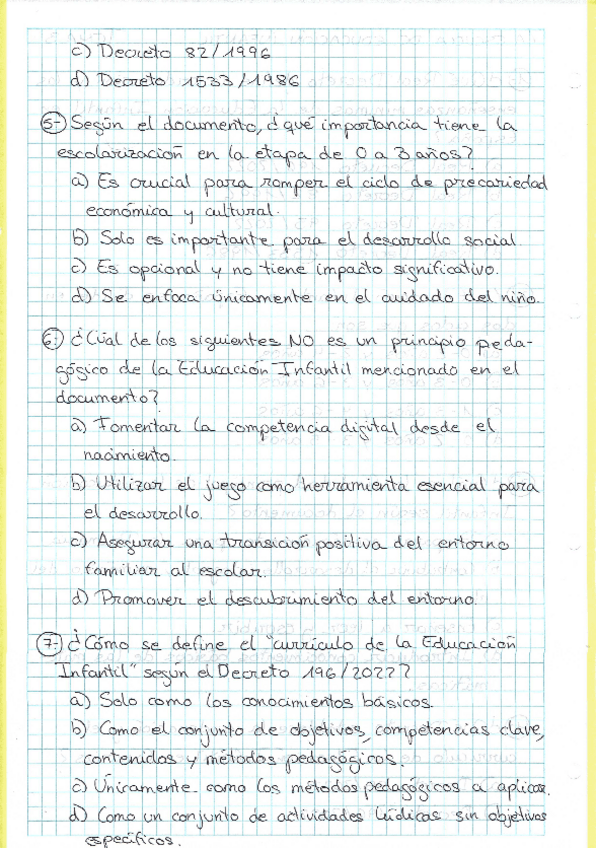 c) Decreto 82/1996
d) Decreto 1533/1986
5- Según el documento, ¿qué importancia tiene la
escolarización en la etapa de 0 a 3 años?
a) Es crucial para romper el ciclo de precariedad
económica y cultural.
b) Solo es importante para el desarrollo social.
c) Es opcional y no tiene impacto significativo.
d) Se enfoca únicamente en el cuidado del niño.
6- ¿Cuál de los siguientes NO es un principio peda-
gógico de la Educación Infantil mencionado en el
documento?
a) Fomentar la competencia digital desde el
nacimiento.
b) Utilizar el juego como herramienta esencial para
el desarrollo.
c) Asegurar una transición positiva del entorno
familiar al escolar.
d) Promover el descubrimiento del entorno.
7- ¿Cómo se define el "currículo de la Educación
Infantil" según el Decreto 196/2022?
a) Solo como los conocimientos básicos.
b) Como el conjunto de objetivos, competencias clave,
contenidos y métodos pedagógicos.
c) Únicamente como los métodos pedagógicos a aplicar.
d) Como un conjunto de actividades lúdicas sin objetivos
específicos.